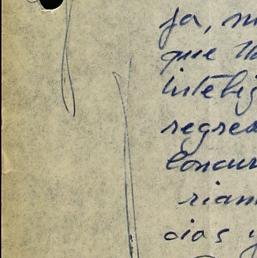 ja, m
que
intelig
regres
concur
riam
cias y